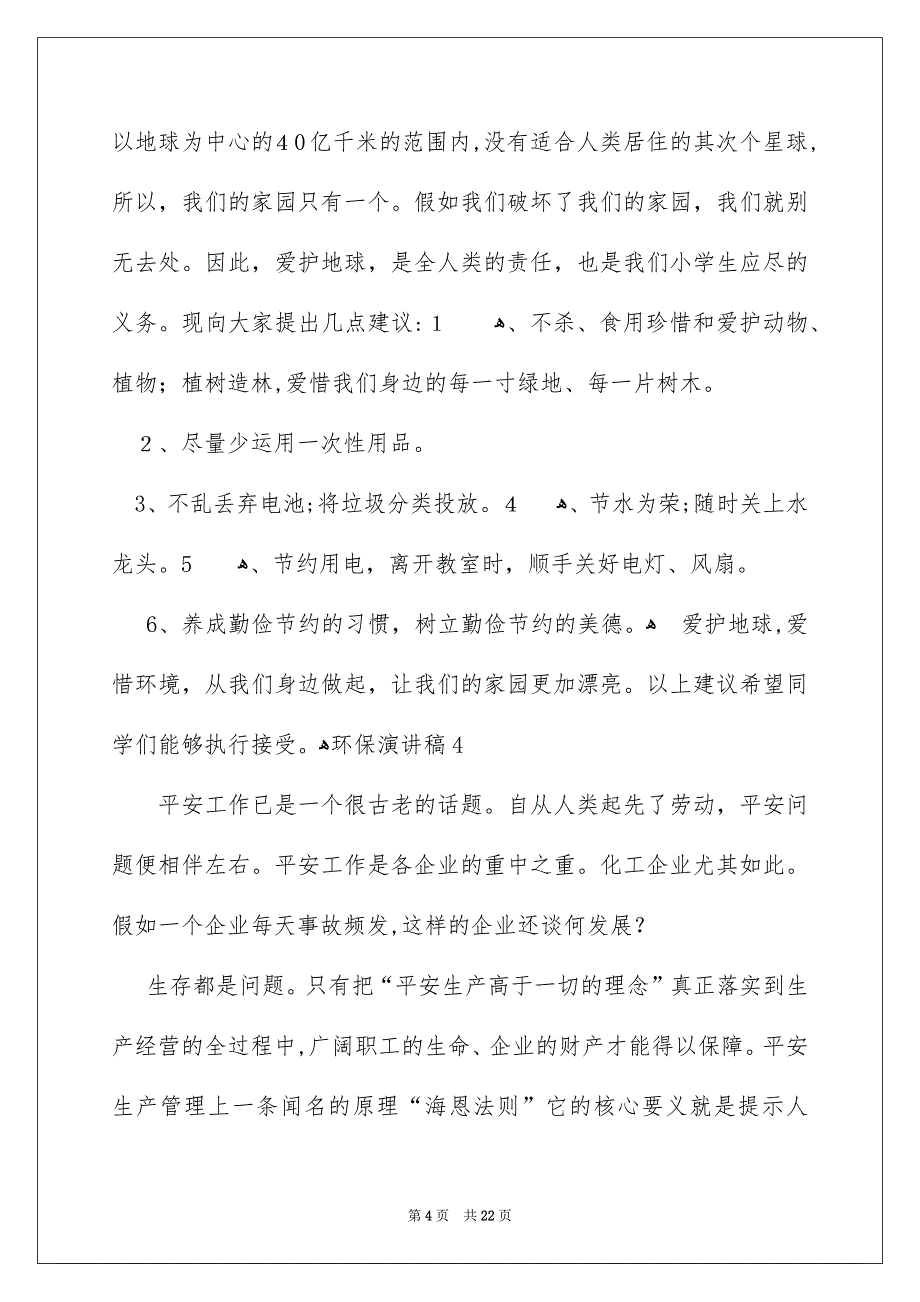 以地球为中心的40亿千米的范围内,没有适合人类居住的其次个星球,
所以，我们的家园只有一个。假如我们破坏了我们的家园，我们就别
无去处。因此，爱护地球，是全人类的责任，也是我们小学生应尽的
义务。现向大家提出几点建议: 1 ﻫ、不杀、食用珍惜和爱护动物、
植物；植树造林,爱惜我们身边的每一寸绿地、每一片树木。
2、尽量少运用一次性用品。
3、不乱丢弃电池;将垃圾分类投放。4 ﻫ、节水为荣;随时关上水
龙头。5 ﻫ、节约用电，离开教室时，顺手关好电灯、风扇。
6、养成勤俭节约的习惯，树立勤俭节约的美德。ﻫ 爱护地球,爱
惜环境，从我们身边做起，让我们的家园更加漂亮。以上建议希望同
学们能够执行接受。ﻫ环保演讲稿4
平安工作已是一个很古老的话题。自从人类起先了劳动，平安问
题便相伴左右。平安工作是各企业的重中之重。化工企业尤其如此。
假如一个企业每天事故频发,这样的企业还谈何发展？
生存都是问题。只有把“平安生产高于一切的理念”真正落实到生
产经营的全过程中,广阔职工的生命、企业的财产才能得以保障。平安
生产管理上一条闻名的原理“海恩法则”它的核心要义就是提示人
第 4 页 共 22 页